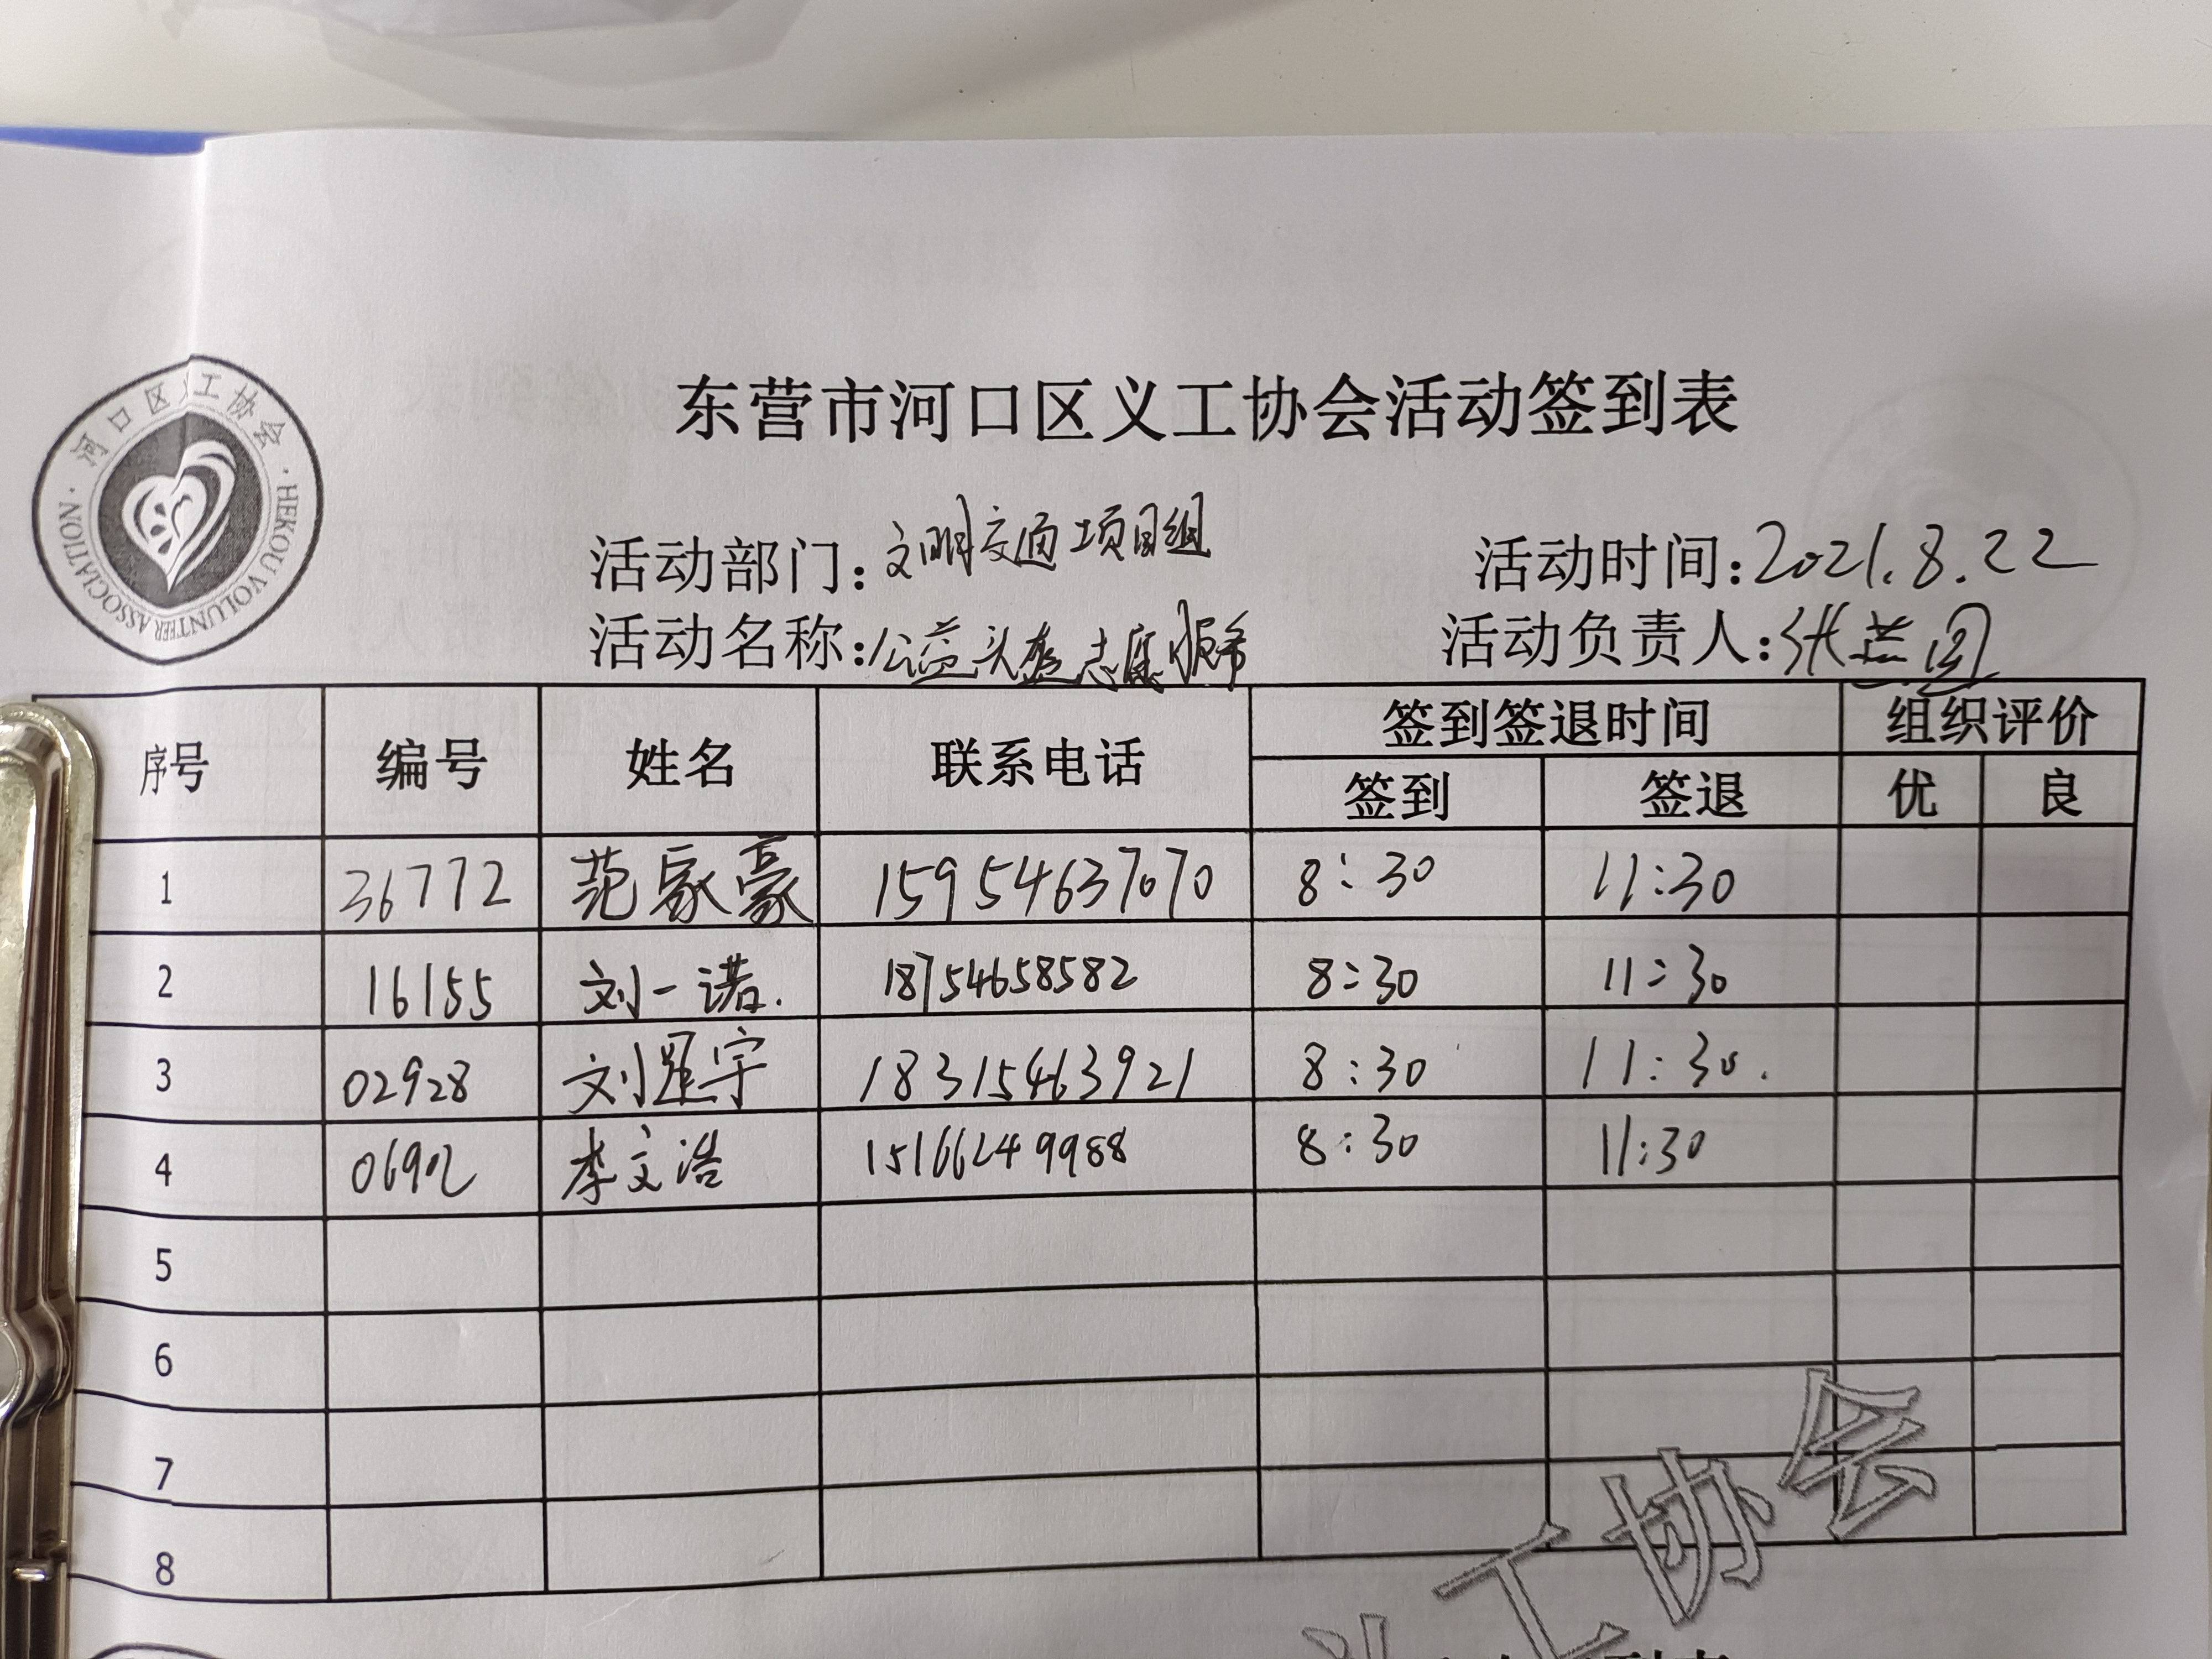 东营市河口区义工协会活动签到表
河口区义工协会
HEKOU VOLUNTEER ASSOCIATION
活动部门：文明交通项目组 活动时间：2021.8.22
活动名称：公益头盔志愿服务 活动负责人：张兰圆
序号 编号 姓名 联系电话 签到签退时间 组织评价
签到 签退 优 良
1 36772 范家豪 15954637070 8:30 11:30
2 16155 刘一诺. 18754658582 8:30 11:30
3 02928 刘星宇 18315463921 8:30 11:30.
4 李文浩 15166249988 8:30 11:30
5
6
7
8
工协会